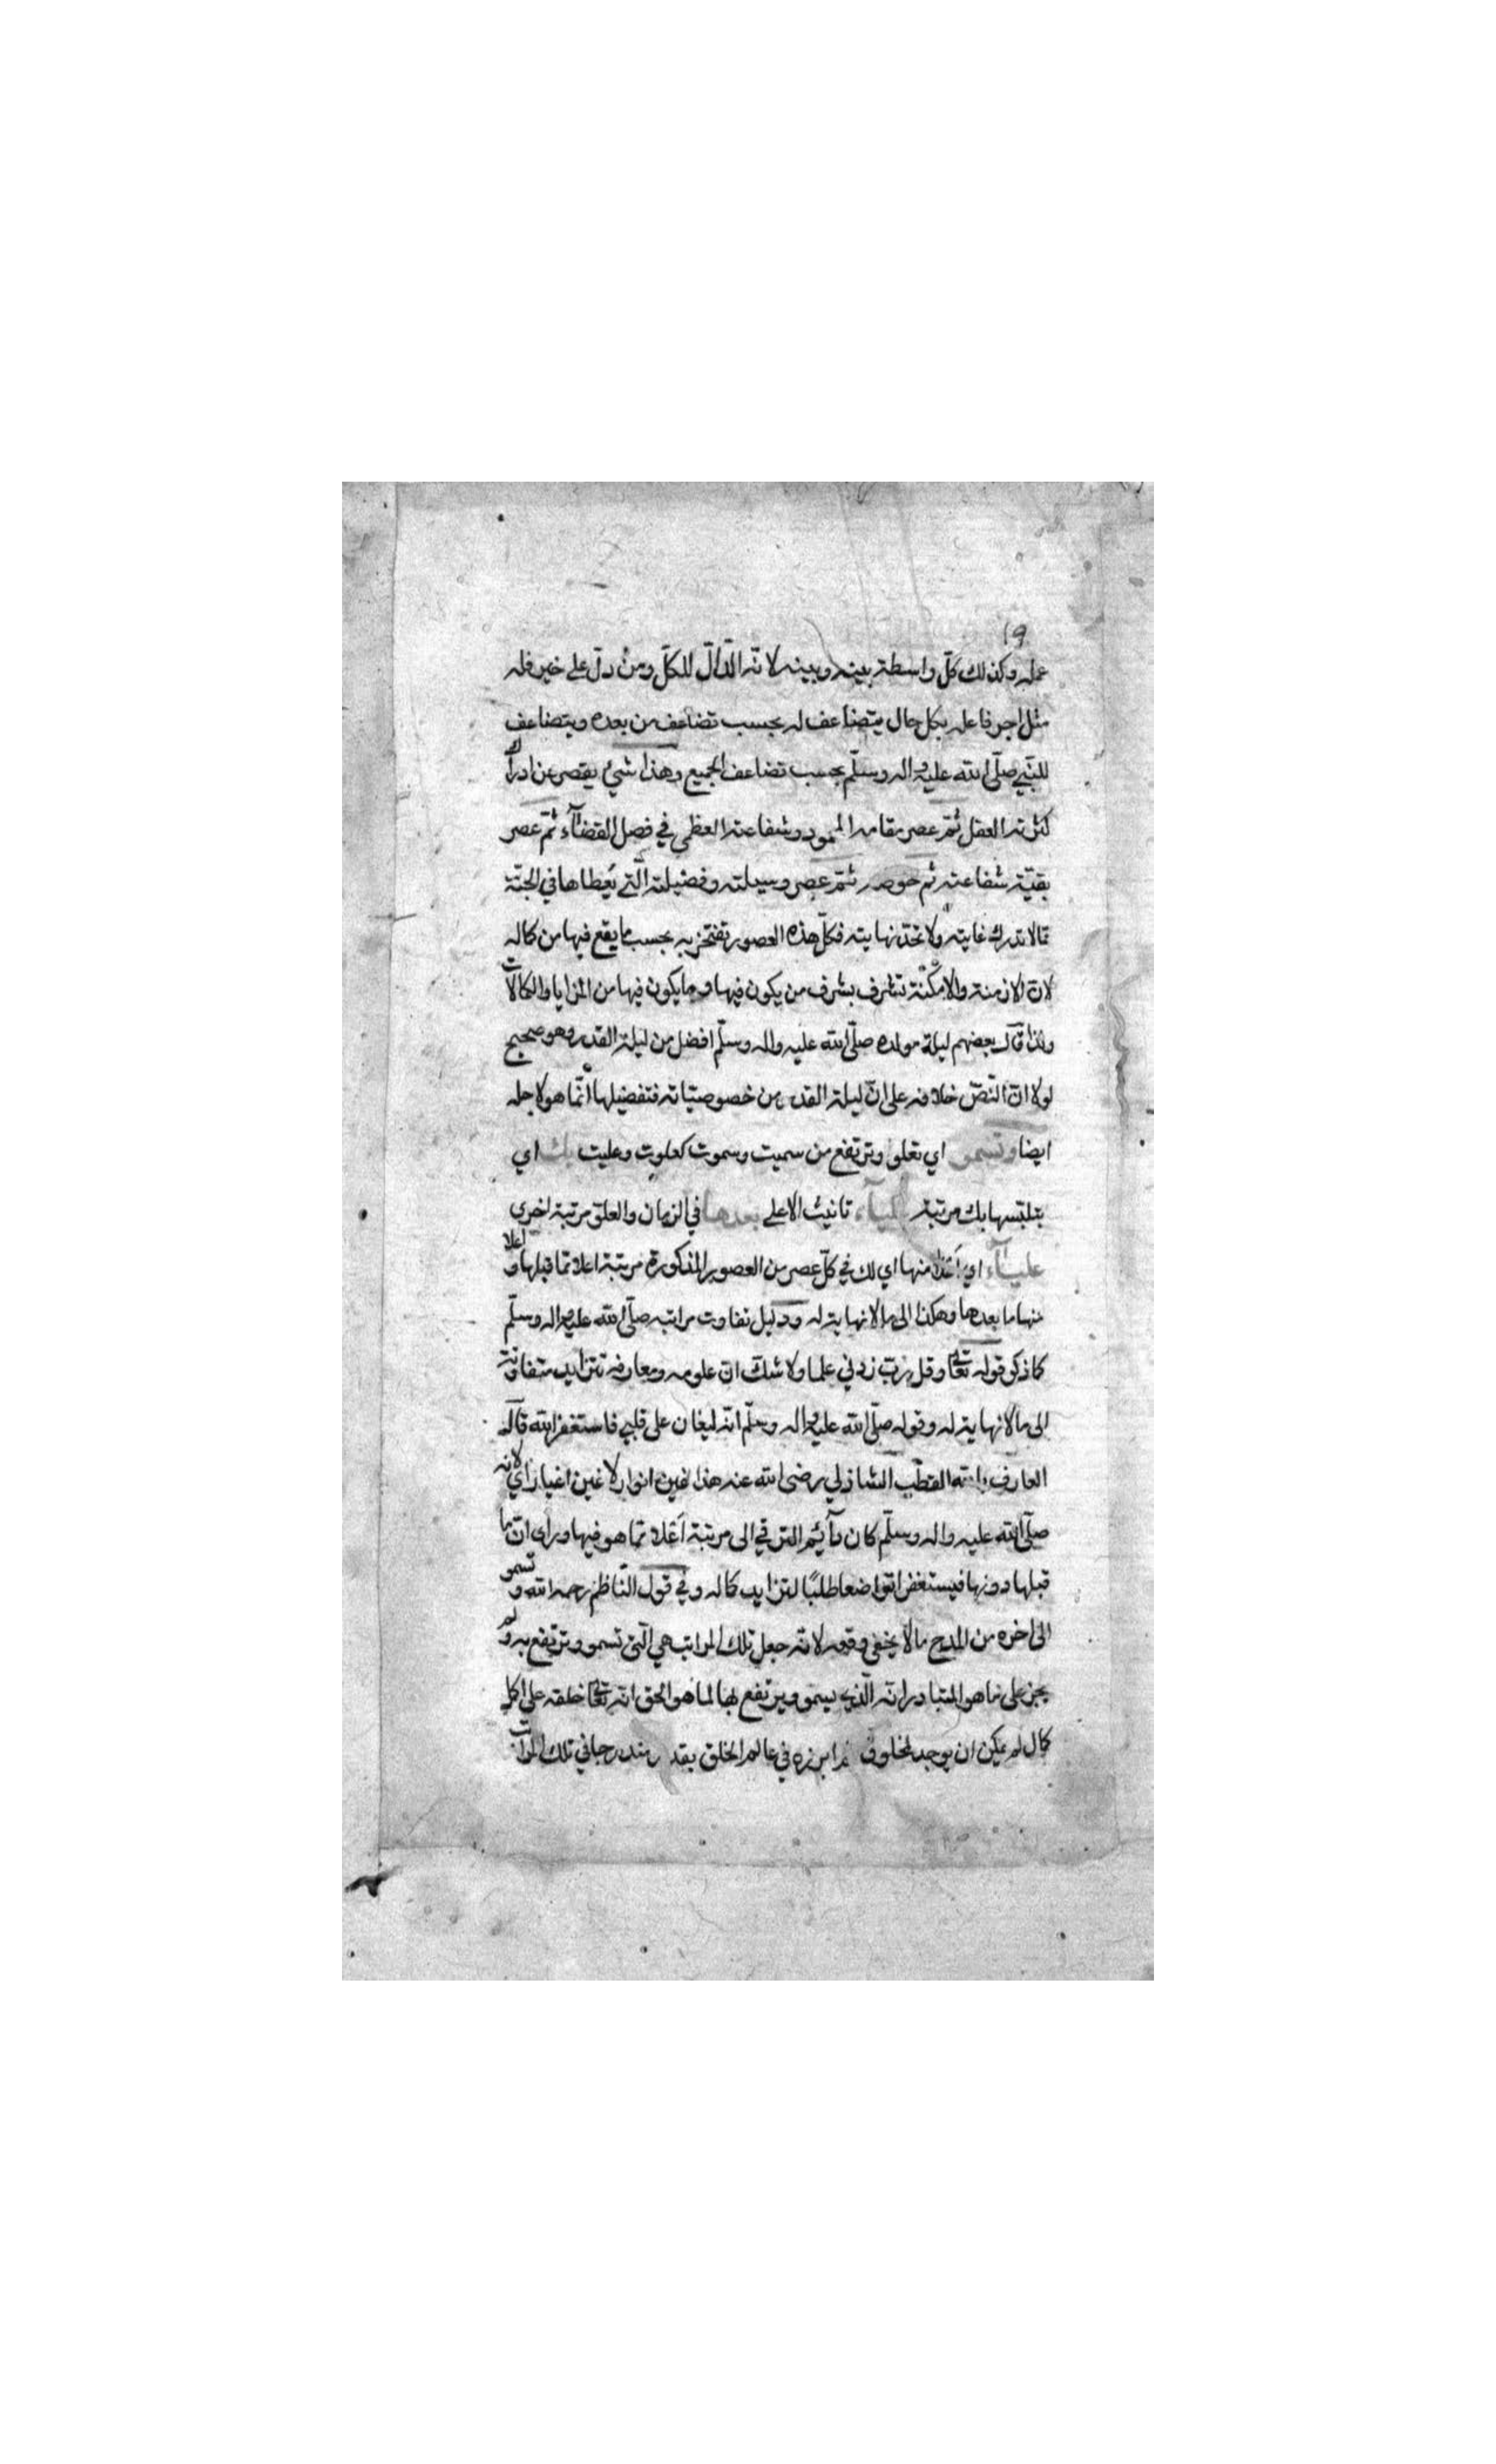 ١٩
عمله وكذلك كلّ واسطة بينه وبينه لانّه الدّالّ للكلّ ومن دلّ على خير فله
مثل اجر فاعله بكل حال يتضاعف له بحسب تضاعف من بعده ويتضاعف
للنّبي صلّى الله عليه واله وسلّم بحسب تضاعف الجميع وهذا شيئ يقصر عن ادراك
كثرته العقل ثمّ عصر مقامه المحمود وشفاعته العظمى في فصل القضآء ثمّ عصر
بقيّة شفاعته ثم حوضه ثمّ عصر وسيلته وفضيلته الّتي يُعطاها في الجنّة
ممّا لا تدرك غايته ولا تحدّ نهايته فكلّ هذه العصور تفتخر به بحسب ما يقع فيها من كماله
لانّ الازمنة والامكنة تتشرف بشرف من يكون فيها وما يكون فيها من المزايا والكمالات
ولذا قال بعضهم ليلة مولده صلّى الله عليه واله وسلّم افضل من ليلة القدر وهو صحيح
لولا انّ النّصّ خلافه على انّ ليلة القدر من خصوصيّاته فتفضيلها انّما هو لاجله
ايضا وتسمو اي تعلو وترتفع من سميت وسموت كعلوت وعليت بك اي
بتلبّسها بك مرتبة علياء تانيث الاعلى بعدها في الزمان والعلوّ مرتبة اخرى
عليآء اي اَعْلا منها اي لك في كلّ عصر من العصور المذكورة مرتبة اعلا ممّا قبلها واعلا
منها ما بعدها وهكذا الى ما لا نهاية له ودليل تفاوت مراتبه صلّى الله عليه واله وسلّم
كما ذكر قوله تعالى وقل ربّ زدني علما ولا شكّ انّ علومه ومعارفه تتزايد متفاوتة
الى ما لا نهاية له وقوله صلّى الله عليه واله وسلّم انّه ليغان على قلبي فاستغفر الله قال
العارف بالله القطب الشاذلي رضى الله عنه هذا غين انوار لا غين اغيار اي لانه
صلّى الله عليه واله وسلّم كان دآئم الترقي الى مرتبة اَعْلا ممّا هو فيها وراى انّ ما
قبلها دونها فيستغفر تواضعا طلبًا لتزايد كماله وفي قول النّاظم رحمه الله وتسمو
الى اخره من المدح ما لا يخفى وقعه لانّه جعل تلك المراتب هي الّتي تسمو وترتفع به ولم
يجر على ما هو المتبادر انّه الّذي يسمو ويرتفع بها لما هو الحق انّه تعالى خلقه على اكمل
كمال لم يمكن ان يوجد لمخلوق ثم ابرزه في عالم الخلق متدرجا في تلك المراتب